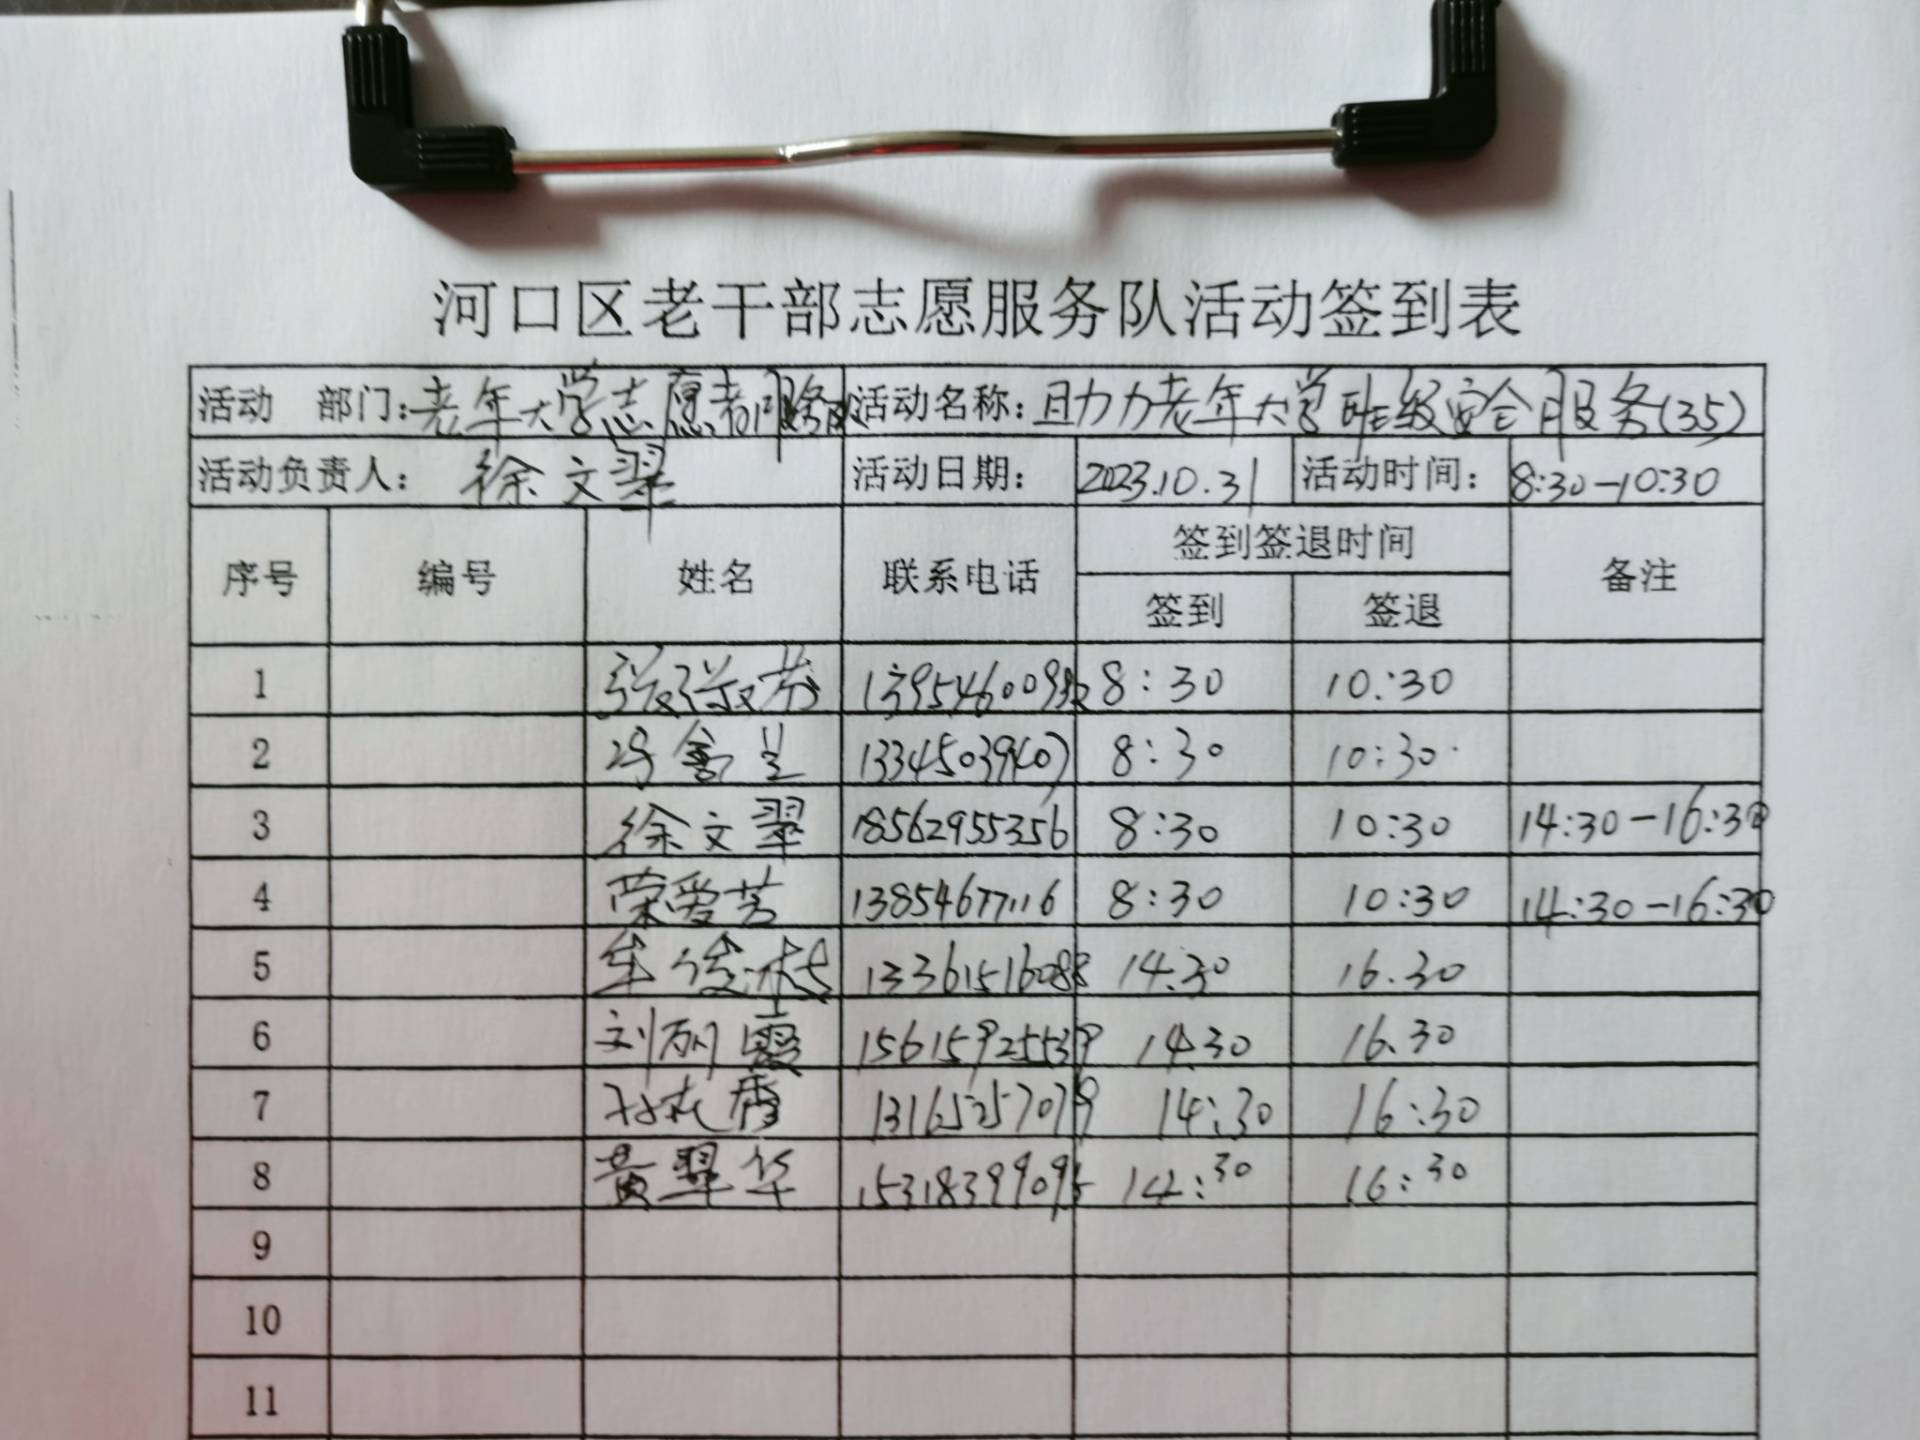 河口区老干部志愿服务队活动签到表
活动 部门：老年大学志愿者服务队 活动名称：助力老年大学班级安全服务(35)
活动负责人： 徐文翠 活动日期： 2023.10.31 活动时间： 8:30-10:30
序号 编号 姓名 联系电话 签到签退时间 备注
签到 签退
1 8:30 10:30
2 8:30 10:30
3 徐文翠 18562955356 8:30 10:30 14:30-16:30
4 荣爱芳 13854677116 8:30 10:30 14:30-16:30
5 13361516088 14.30 16.30
6 刘丽霞 15615925539 1430 16.30
7 13165257079 14:30 16:30
8 黄翠华 15318399095 14:30 16:30
9
10
11